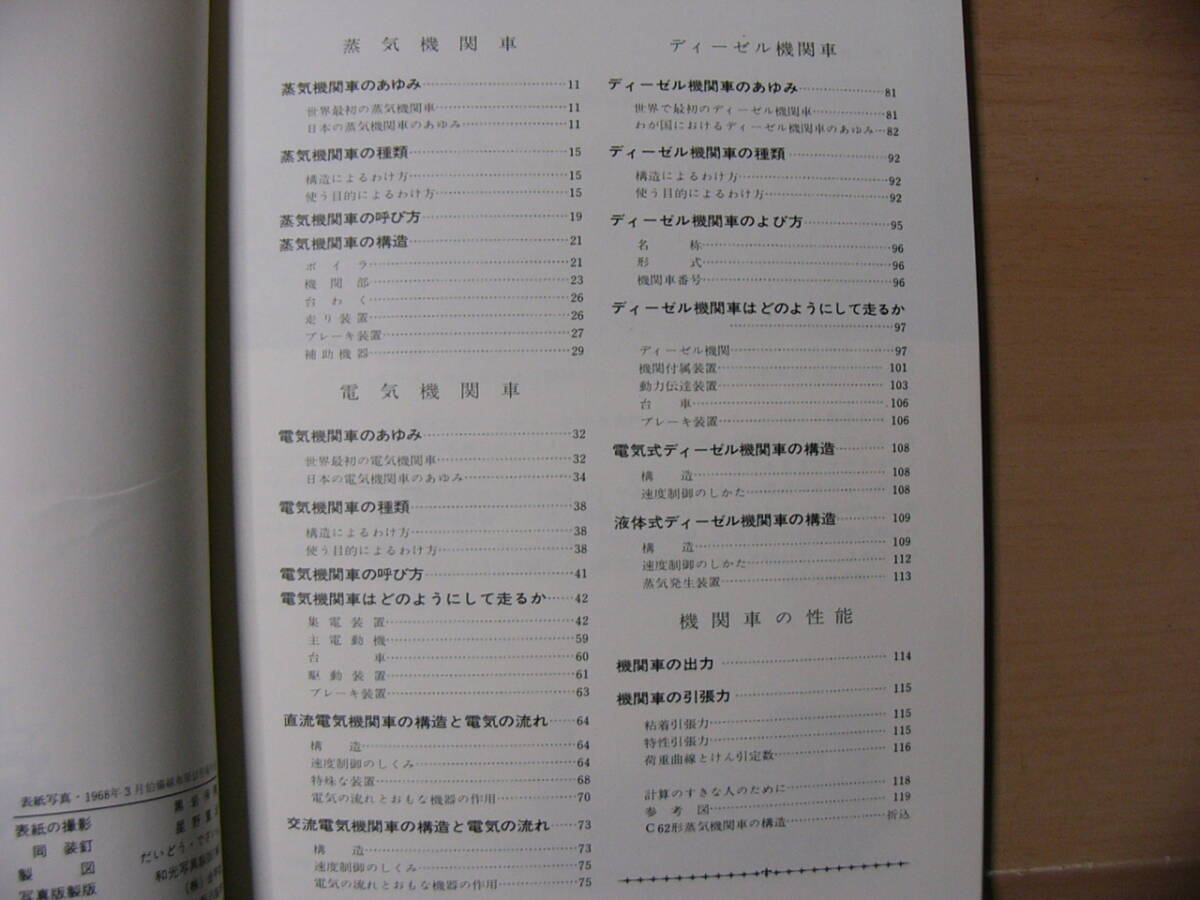 蒸気機関車
蒸気機関車のあゆみ……………………11
世界最初の蒸気機関車……………………11
日本の蒸気機関車のあゆみ………………11
蒸気機関車の種類………………………15
構造によるわけ方…………………………15
使う目的によるわけ方……………………15
蒸気機関車の呼び方……………………19
蒸気機関車の構造………………………21
ボイラ………………………………………21
機関部………………………………………23
台わく………………………………………26
走り装置……………………………………26
ブレーキ装置………………………………27
補助機器……………………………………29
電気機関車
電気機関車のあゆみ……………………32
世界最初の電気機関車……………………32
日本の電気機関車のあゆみ………………34
電気機関車の種類………………………38
構造によるわけ方…………………………38
使う目的によるわけ方……………………38
電気機関車の呼び方……………………41
電気機関車はどのようにして走るか……42
集電装置……………………………………42
主電動機……………………………………59
台車…………………………………………60
駆動装置……………………………………61
ブレーキ装置………………………………63
直流電気機関車の構造と電気の流れ……64
構造…………………………………………64
速度制御のしくみ…………………………64
特殊な装置…………………………………68
電気の流れとおもな機器の作用…………70
交流電気機関車の構造と電気の流れ……73
構造…………………………………………73
速度制御のしくみ…………………………75
電気の流れとおもな機器の作用…………75
ディーゼル機関車
ディーゼル機関車のあゆみ……………81
世界で最初のディーゼル機関車…………81
わが国におけるディーゼル機関車のあゆみ…82
ディーゼル機関車の種類………………92
構造によるわけ方…………………………92
使う目的によるわけ方……………………92
ディーゼル機関車のよび方……………95
名称…………………………………………96
形式…………………………………………96
機関車番号…………………………………96
ディーゼル機関車はどのようにして走るか
……………………97
ディーゼル機関……………………………97
機関付属装置………………………………101
動力伝達装置………………………………103
台車…………………………………………106
ブレーキ装置………………………………106
電気式ディーゼル機関車の構造………108
構造…………………………………………108
速度制御のしかた…………………………108
液体式ディーゼル機関車の構造………109
構造…………………………………………109
速度制御のしかた…………………………112
蒸気発生装置………………………………113
機関車の性能
機関車の出力……………………………114
機関車の引張力…………………………115
粘着引張力…………………………………115
特性引張力…………………………………115
荷重曲線とけん引定数……………………116
計算のすきな人のために…………………118
参考図………………………………………119
C62形蒸気機関車の構造…………………折込
表紙写真・1968年3月伯備線
表紙の撮影
同 装釘
製図 だいどう・でざい
写真版製版 和光写真製版